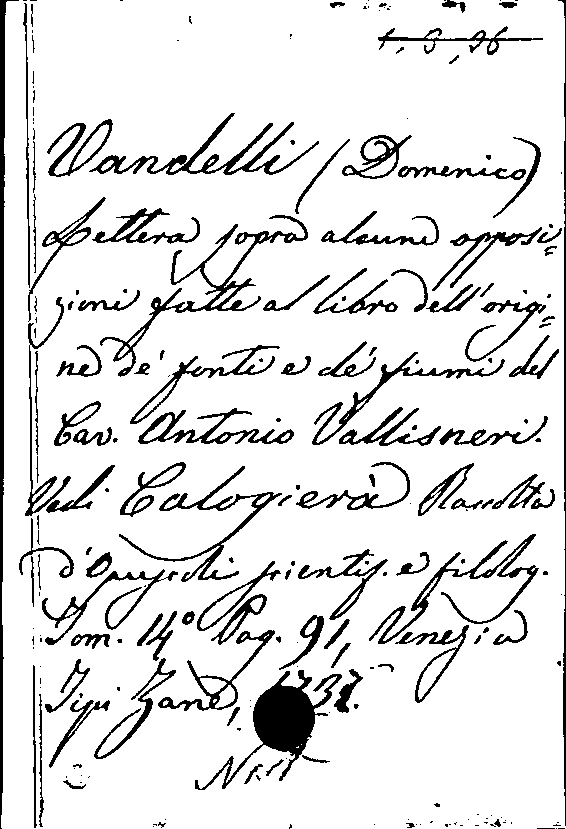 1, 3, 26
Vandelli (Domenico)
Lettera sopra alcune opposi=
zioni fatte al libro dell'origi=
ne de' fonti e de' fiumi del
Cav. Antonio Vallisneri.
Vedi Calogierà Raccolta
d'Opuscoli scientif. e filolog.
Tom. 14° Pag. 91, Venezia
Tipi Zane, 1737.